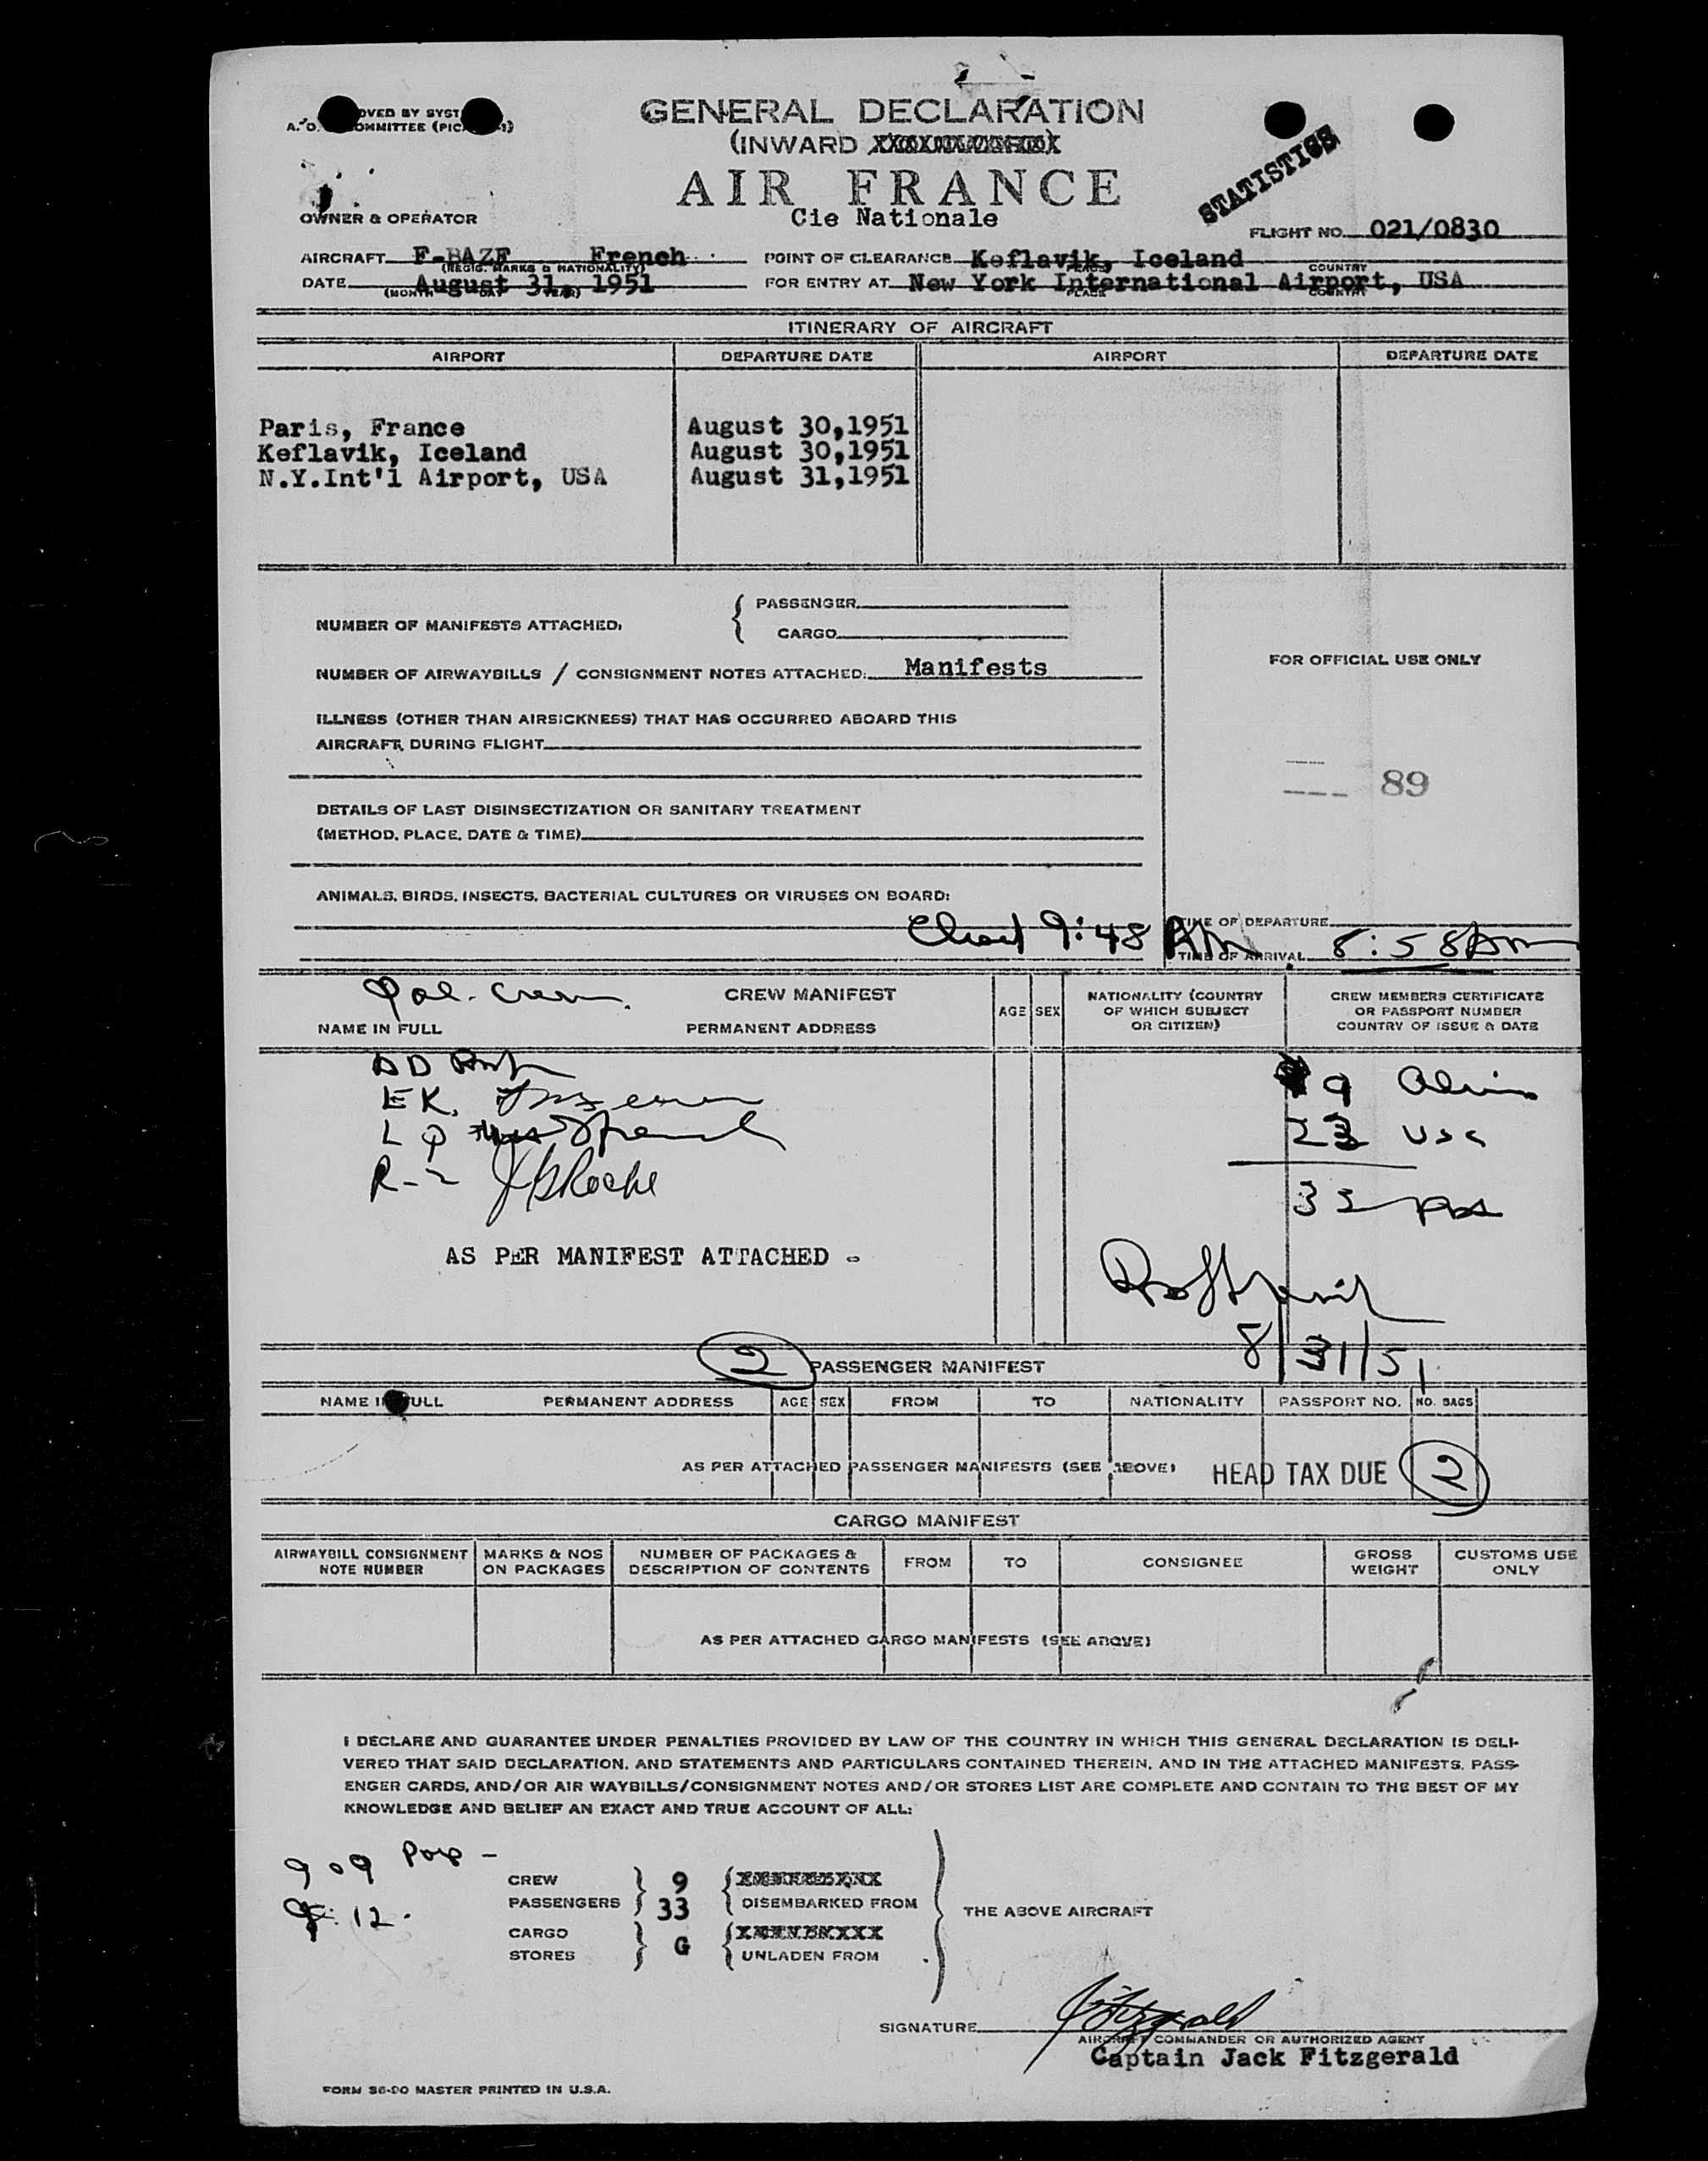 OVED BY SYST
OMMITTEE (PIC
GENERAL DECLARATION
(INWARD
AIR FRANCE
Cie Nationale
STATISTICS
OWNER & OPERATOR
FLIGHT NO. 021/0830
AIRCRAFT F-BAZF French POINT OF CLEARANCE Keflavik, Iceland
(REGIS. MARKS & NATIONALITY) PLACE COUNTRY
DATE August 31, 1951 FOR ENTRY AT New York International Airport, USA
(MONTH DAY YEAR) PLACE COUNTRY
ITINERARY OF AIRCRAFT
AIRPORT DEPARTURE DATE AIRPORT DEPARTURE DATE
Paris, France August 30,1951
Keflavik, Iceland August 30,1951
N.Y.Int'l Airport, USA August 31,1951
NUMBER OF MANIFESTS ATTACHED: PASSENGER
CARGO
NUMBER OF AIRWAYBILLS / CONSIGNMENT NOTES ATTACHED: Manifests
FOR OFFICIAL USE ONLY
ILLNESS (OTHER THAN AIRSICKNESS) THAT HAS OCCURRED ABOARD THIS
AIRCRAFT, DURING FLIGHT
89
DETAILS OF LAST DISINSECTIZATION OR SANITARY TREATMENT
(METHOD, PLACE, DATE & TIME)
ANIMALS, BIRDS, INSECTS, BACTERIAL CULTURES OR VIRUSES ON BOARD:
TIME OF DEPARTURE
9:48 AM
TIME OF ARRIVAL 8:58 AM
CREW MANIFEST
NAME IN FULL PERMANENT ADDRESS AGE SEX NATIONALITY (COUNTRY OF WHICH SUBJECT OR CITIZEN) CREW MEMBERS CERTIFICATE OR PASSPORT NUMBER COUNTRY OF ISSUE & DATE
9
EK.
R-2 Roche
AS PER MANIFEST ATTACHED -
8/31/51
2 PASSENGER MANIFEST
NAME IN FULL PERMANENT ADDRESS AGE SEX FROM TO NATIONALITY PASSPORT NO. NO. BAGS
AS PER ATTACHED PASSENGER MANIFESTS (SEE ABOVE) HEAD TAX DUE 2
CARGO MANIFEST
AIRWAYBILL CONSIGNMENT NOTE NUMBER MARKS & NOS ON PACKAGES NUMBER OF PACKAGES & DESCRIPTION OF CONTENTS FROM TO CONSIGNEE GROSS WEIGHT CUSTOMS USE ONLY
AS PER ATTACHED CARGO MANIFESTS (SEE ABOVE)
I DECLARE AND GUARANTEE UNDER PENALTIES PROVIDED BY LAW OF THE COUNTRY IN WHICH THIS GENERAL DECLARATION IS DELI-
VERED THAT SAID DECLARATION, AND STATEMENTS AND PARTICULARS CONTAINED THEREIN, AND IN THE ATTACHED MANIFESTS, PASS-
ENGER CARDS, AND/OR AIR WAYBILLS/CONSIGNMENT NOTES AND/OR STORES LIST ARE COMPLETE AND CONTAIN TO THE BEST OF MY
KNOWLEDGE AND BELIEF AN EXACT AND TRUE ACCOUNT OF ALL:
CREW 9
PASSENGERS 33 DISEMBARKED FROM
THE ABOVE AIRCRAFT
CARGO
STORES G UNLADEN FROM
SIGNATURE Fitzgerald
AIRCRAFT COMMANDER OR AUTHORIZED AGENT
Captain Jack Fitzgerald
FORM 36-DO MASTER PRINTED IN U.S.A.